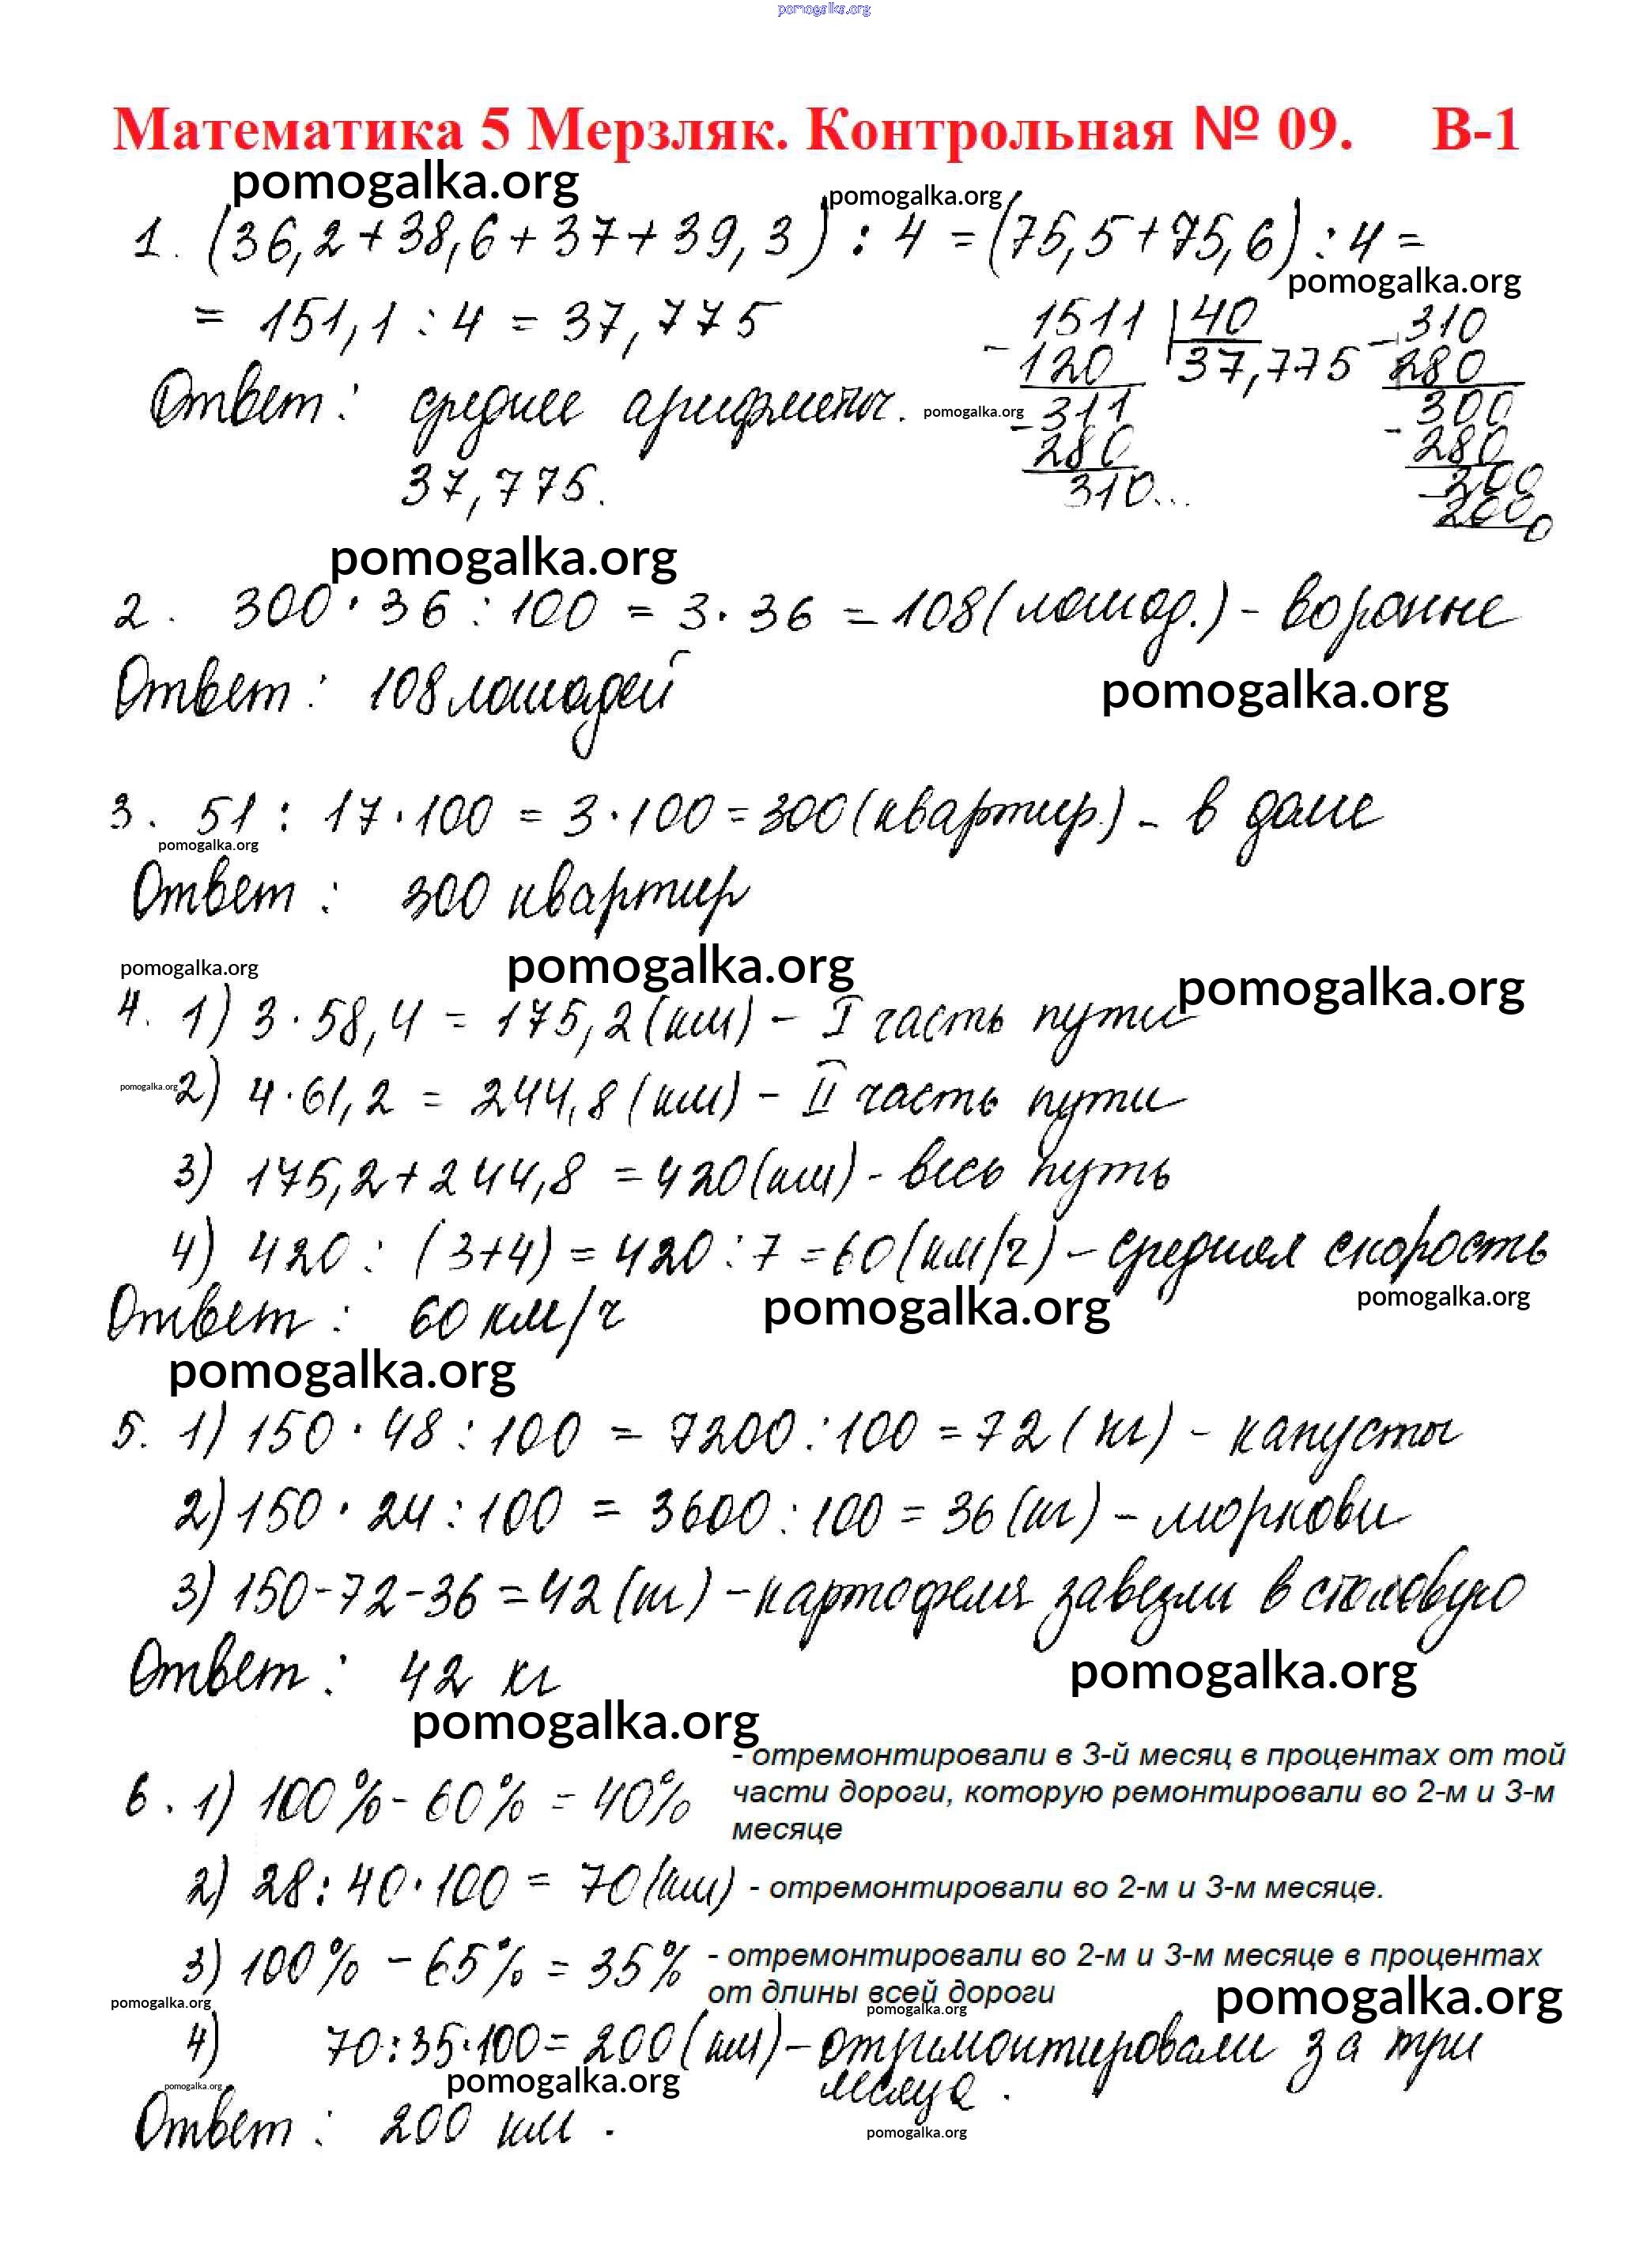 pomogalka.org
Математика 5 Мерзляк. Контрольная № 09. В-1
pomogalka.org pomogalka.org
1. (36,2+38,6+37+39,3) : 4 = (75,5+75,6) : 4 =
pomogalka.org
= 151,1 : 4 = 37,775
1511 | 40
- 120 37,775
- 311
280
310...
- 310
280
- 300
280
- 200
200
0
Ответ: среднее арифметич. pomogalka.org
37,775.
pomogalka.org
2. 300 · 36 : 100 = 3 · 36 = 108 (лошад.) - вороные
Ответ: 108 лошадей pomogalka.org
3. 51 : 17 · 100 = 3 · 100 = 300 (квартир.) - в доме
pomogalka.org
Ответ: 300 квартир
pomogalka.org pomogalka.org pomogalka.org
4. 1) 3 · 58,4 = 175,2 (км) - I часть пути
pomogalka.org 2) 4 · 61,2 = 244,8 (км) - II часть пути
3) 175,2 + 244,8 = 420 (км) - весь путь
4) 420 : (3+4) = 420 : 7 = 60 (км/ч) - средняя скорость
Ответ: 60 км/ч pomogalka.org pomogalka.org
pomogalka.org
5. 1) 150 · 48 : 100 = 7200 : 100 = 72 (кг) - капусты
2) 150 · 24 : 100 = 3600 : 100 = 36 (кг) - моркови
3) 150 - 72 - 36 = 42 (кг) - картофеля завезли в столовую
Ответ: 42 кг pomogalka.org
pomogalka.org
6. 1) 100% - 60% = 40%
- отремонтировали в 3-й месяц в процентах от той
части дороги, которую ремонтировали во 2-м и 3-м
месяце
2) 28 : 40 · 100 = 70 (км) - отремонтировали во 2-м и 3-м месяце.
3) 100% - 65% = 35% - отремонтировали во 2-м и 3-м месяце в процентах
от длины всей дороги
pomogalka.org pomogalka.org pomogalka.org
4) 70 : 35 · 100 = 200 (км) - отремонтировали за три
месяца.
pomogalka.org pomogalka.org
Ответ: 200 км.
pomogalka.org